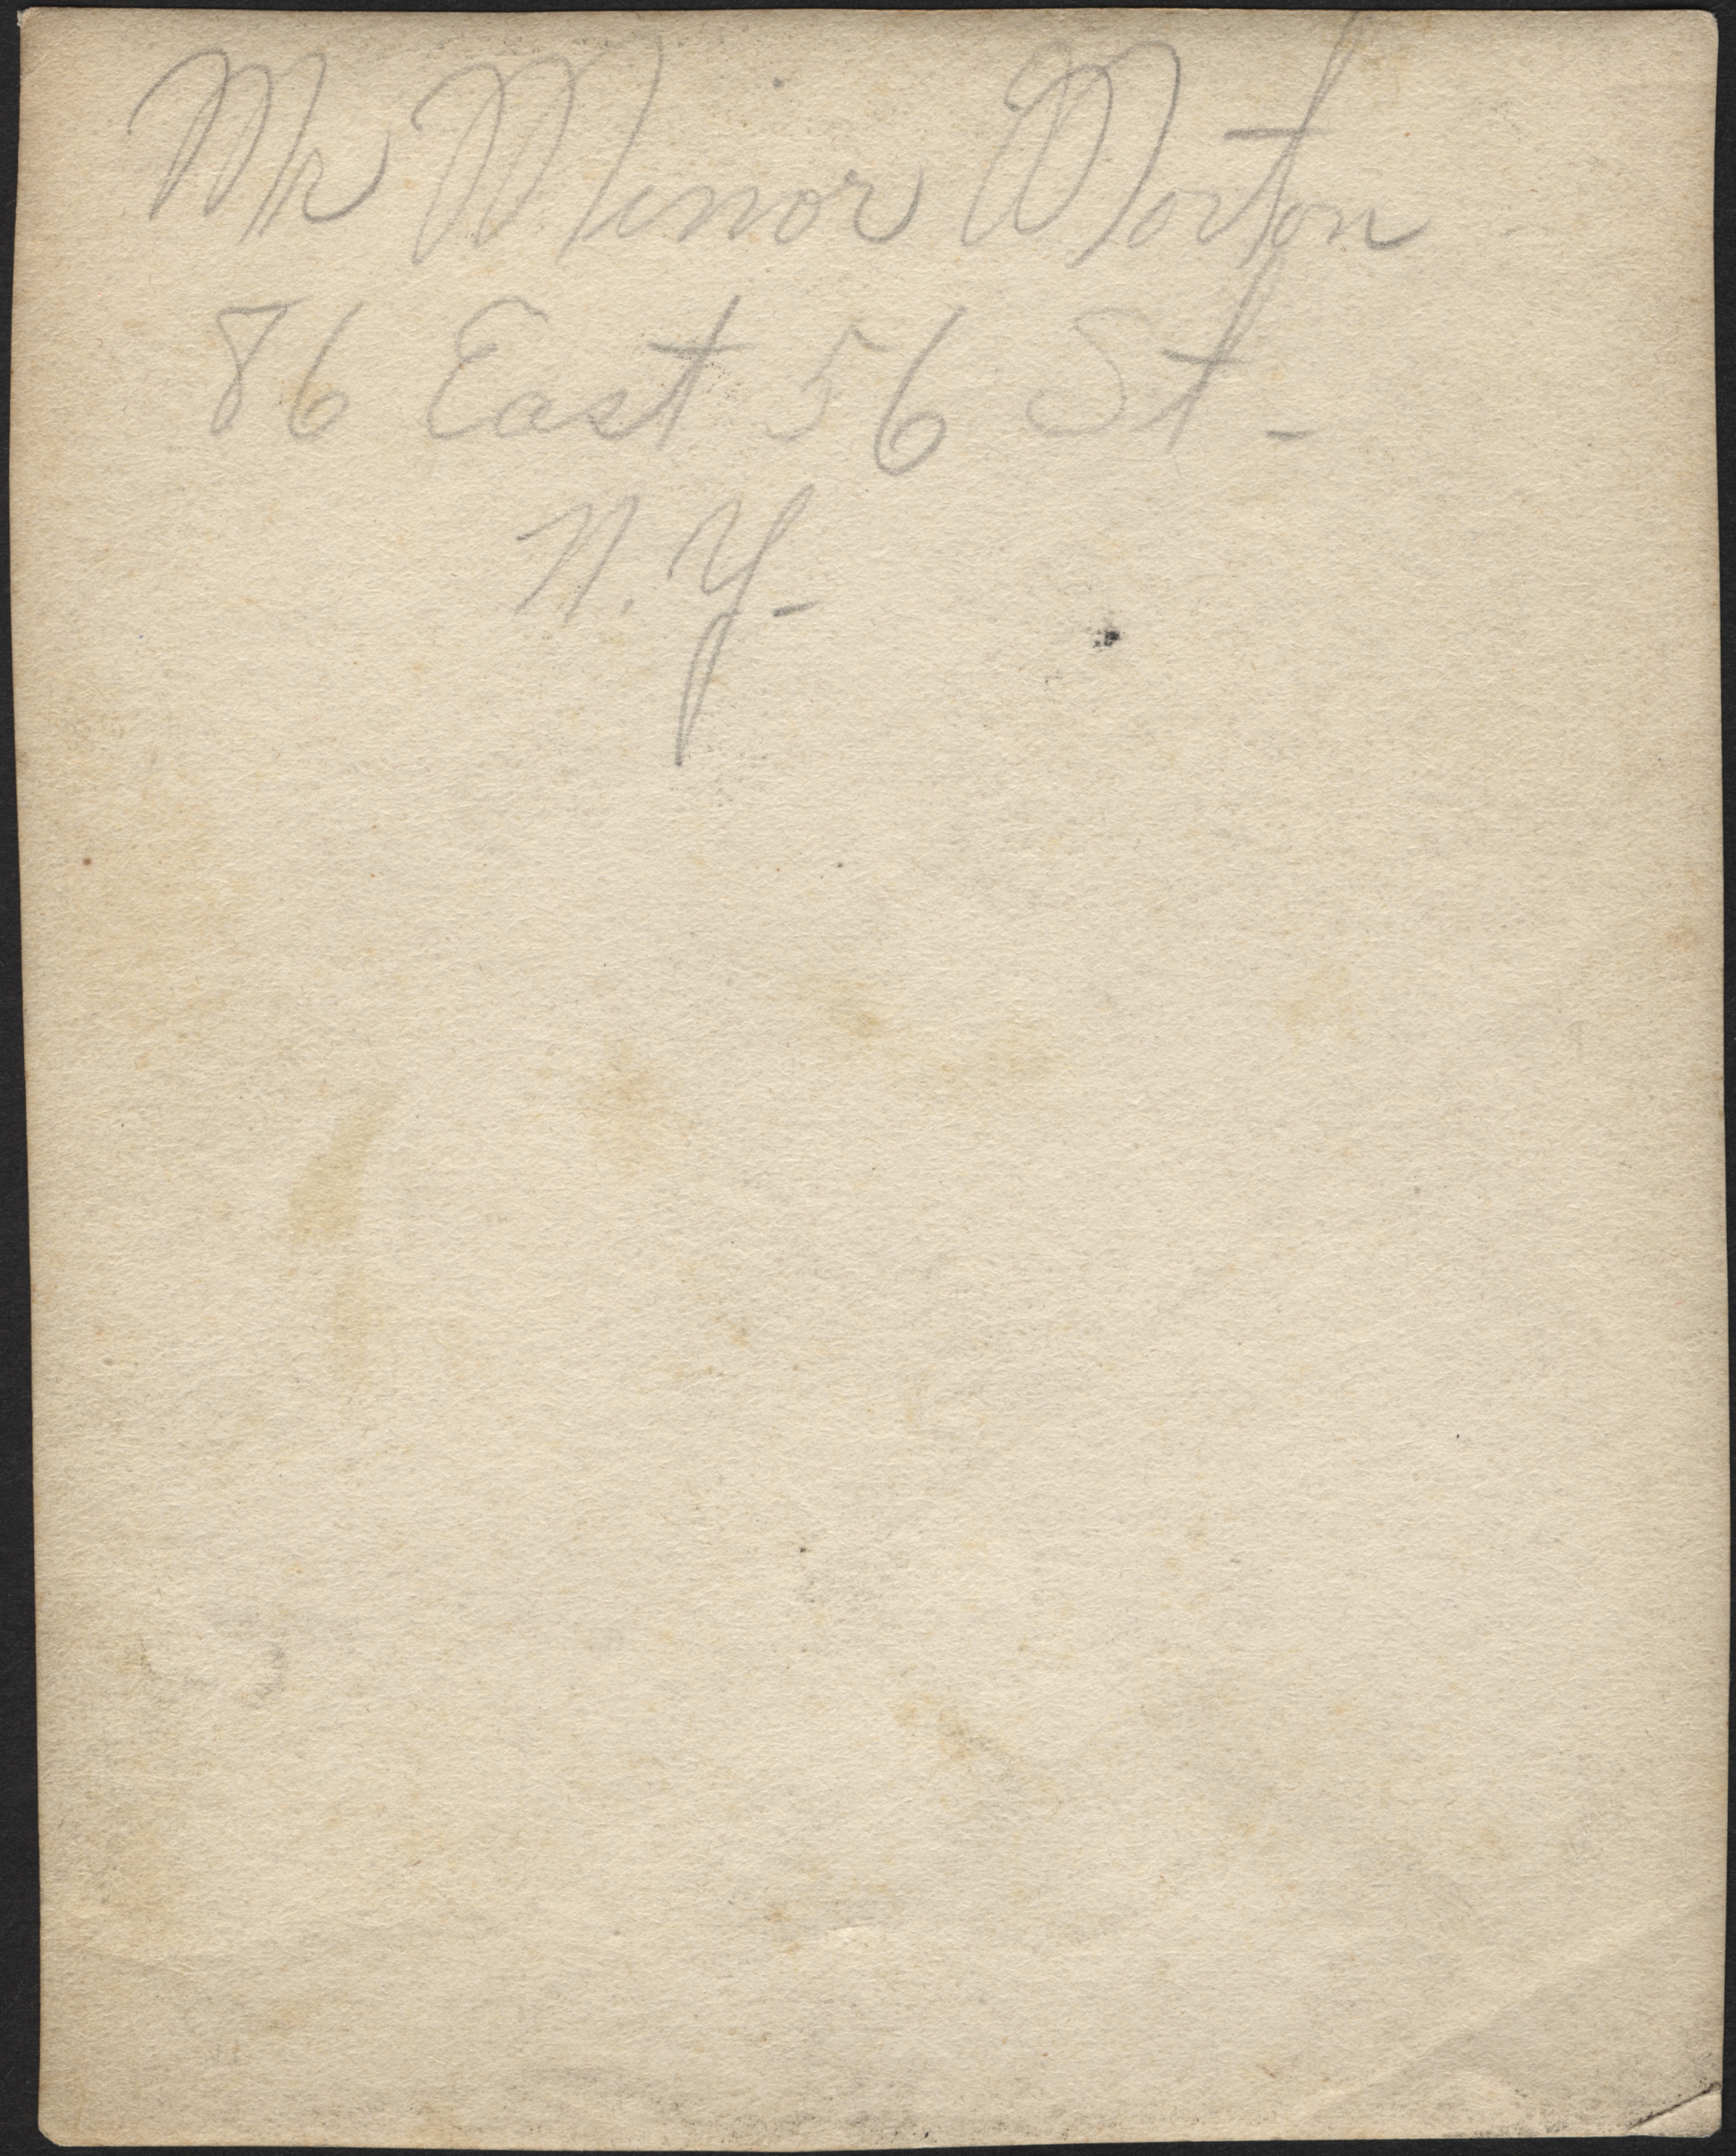 Mr Minor Morton
86 East 56 St-
N.Y-